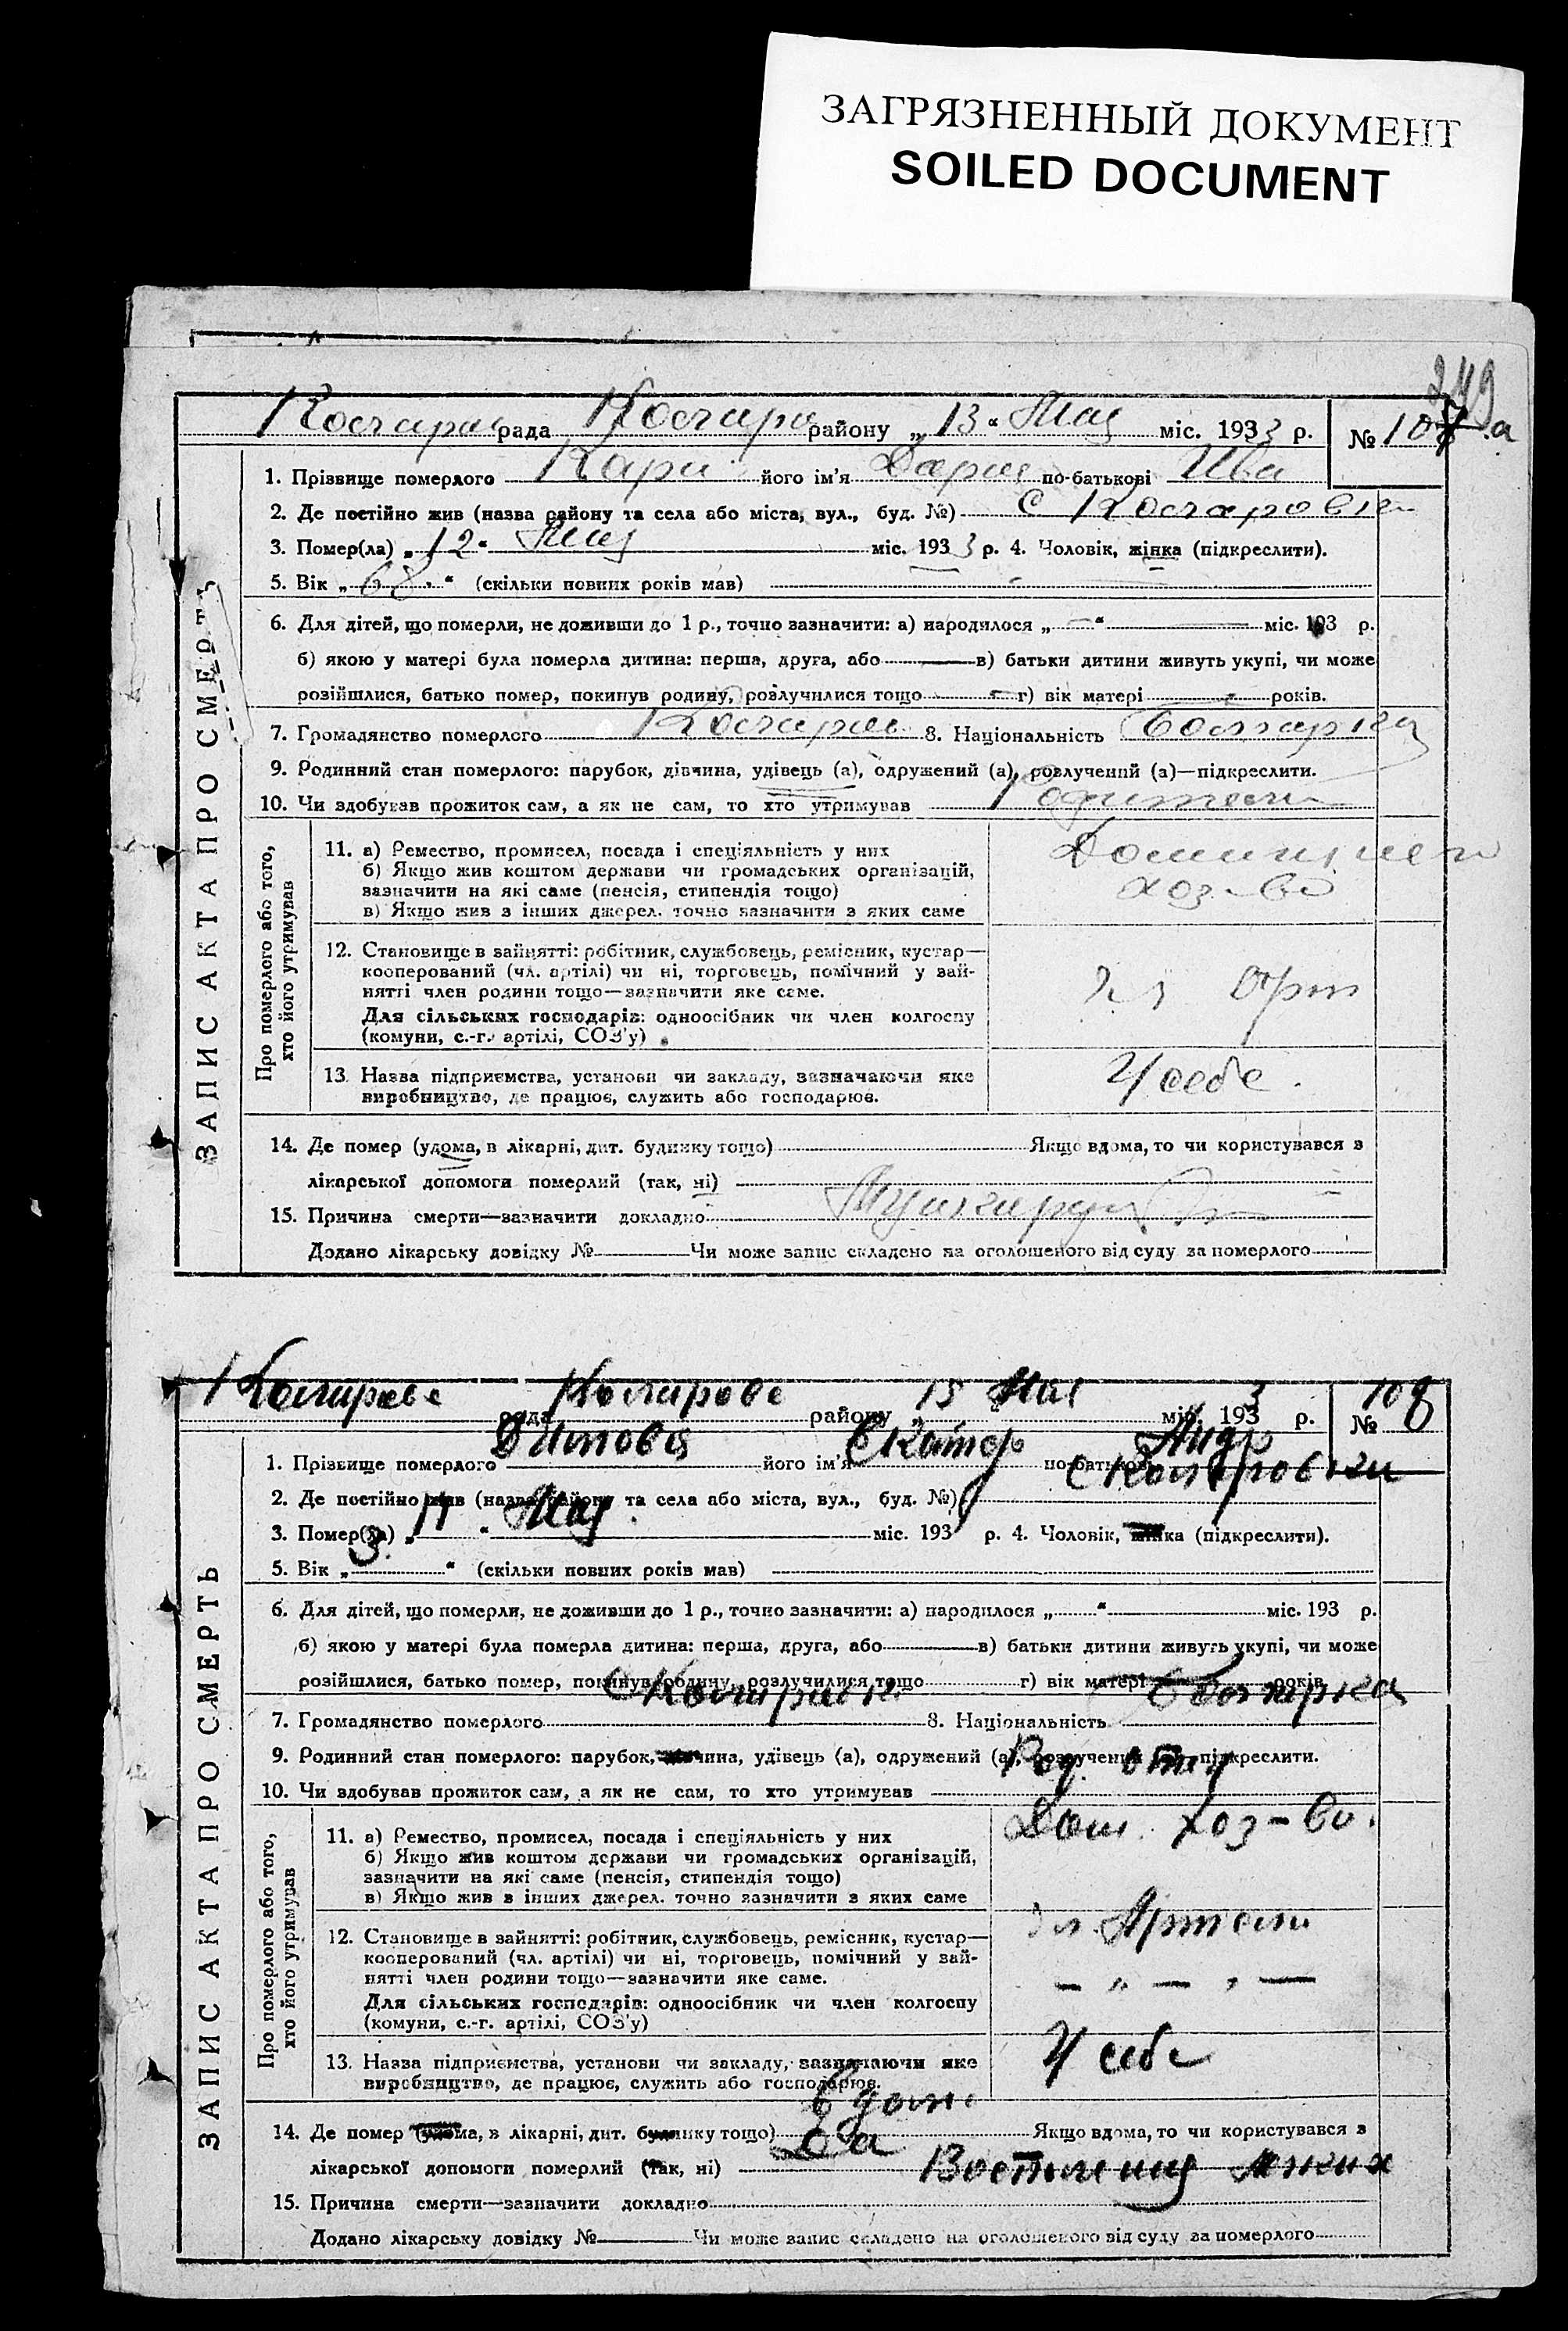 ЗАГРЯЗНЕННЫЙ ДОКУМЕНТ
SOILED DOCUMENT
249 а
рада району „13“ Мая міс. 1933 р. № 107
1. Прізвище померлого його ім'я Дария по-батькові Ива
2. Де постійно жив (назва району та села або міста, вул., буд. №) с
3. Помер(ла) „12“ Мая міс. 1933 р. 4. Чоловік, жінка (підкреслити).
5. Вік „68“ (скільки повних років мав)
6. Для дітей, що померли, не доживши до 1 р., точно зазначити: а) народилося „ “ міс. 193 р.
б) якою у матері була померла дитина: перша, друга, або в) батьки дитини живуть укупі, чи може
розійшлися, батько помер, покинув родину, розлучилися тощо г) вік матері років.
7. Громадянство померлого 8. Національність болгарка
9. Родинний стан померлого: парубок, дівчина, удівець (а), одружений (а), розлучений (а)—підкреслити.
10. Чи здобував прожиток сам, а як не сам, то хто утримував
ЗАПИС АКТА ПРО СМЕРТЬ
Про померлого або того, хто його утримував
11. а) Ремество, промисел, посада і спеціяльність у них
б) Якщо жив коштом держави чи громадських організацій,
зазначити на які саме (пенсія, стипендія тощо)
в) Якщо жив з інших джерел. точно зазначити з яких саме
хоз-во
12. Становище в зайнятті: робітник, службовець, ремісник, кустар—
кооперований (чл. артілі) чи ні, торговець, помічний у зай-
нятті член родини тощо—зазначити яке саме.
Для сільських господарів: одноосібник чи член колгоспу
(комуни, с.-г. артілі, СОЗ'у)
13. Назва підприємства, установи чи закладу, зазначаючи яке
виробництво, де працює, служить або господарює.
У себе.
14. Де помер (удома, в лікарні, дит. будинку тощо) Якщо вдома, то чи користувався з
лікарської допомоги померлий (так, ні)
15. Причина смерти—зазначити докладно
Додано лікарську довідку № Чи може запис складено на оголошеного від суду за померлого
рада району „15 Мая міс. 1933 р. № 108
1. Прізвище померлого Димова його ім'я Екатер по-батькові Андр
2. Де постійно жив (назва району та села або міста, вул., буд. №)
3. Помер(ла) „11“ Мая. міс. 193 р. 4. Чоловік, жінка (підкреслити).
5. Вік „3.“ (скільки повних років мав)
6. Для дітей, що померли, не доживши до 1 р., точно зазначити: а) народилося „ “ міс. 193 р.
б) якою у матері була померла дитина: перша, друга, або в) батьки дитини живуть укупі, чи може
розійшлися, батько помер, покинув родину, розлучилися тощо г) вік матері років.
7. Громадянство померлого 8. Національність болгарка
9. Родинний стан померлого: парубок, дівчина, удівець (а), одружений (а), розлучений (а)—підкреслити.
10. Чи здобував прожиток сам, а як не сам, то хто утримував отец
ЗАПИС АКТА ПРО СМЕРТЬ
Про померлого або того, хто його утримував
11. а) Ремество, промисел, посада і спеціяльність у них
б) Якщо жив коштом держави чи громадських організацій,
зазначити на які саме (пенсія, стипендія тощо)
в) Якщо жив з інших джерел. точно зазначити з яких саме
Дом. хоз-во.
12. Становище в зайнятті: робітник, службовець, ремісник, кустар—
кооперований (чл. артілі) чи ні, торговець, помічний у зай-
нятті член родини тощо—зазначити яке саме.
Для сільських господарів: одноосібник чи член колгоспу
(комуни, с.-г. артілі, СОЗ'у)
чл. Артели
— „ — „ —
13. Назва підприємства, установи чи закладу, зазначаючи яке
виробництво, де працює, служить або господарює.
У себе
14. Де помер (удома, в лікарні, дит. будинку тощо) Якщо вдома, то чи користувався з
лікарської допомоги померлий (так, ні) Да
15. Причина смерти—зазначити докладно
Додано лікарську довідку № Чи може запис складено на оголошеного від суду за померлого